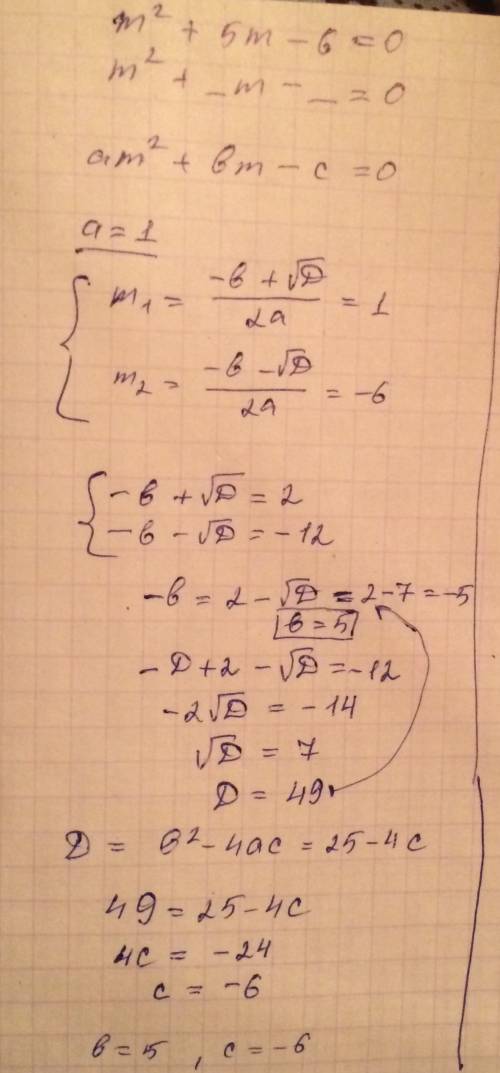 m² + 5m - 6 = 0
m² + _m - _ = 0
am² + вm - c = 0
a = 1
m₁ = (-в + √D)/2a = 1
m₂ = (-в - √D)/2a = -6
-в + √D = 2
-в - √D = -12
-в = 2 - √D = 2 - 7 = -5
в = 5
-D + 2 - √D = -12
-2√D = -14
√D = 7
D = 49
D = в² - 4ac = 25 - 4c
49 = 25 - 4c
4c = -24
c = -6
в = 5 , c = -6